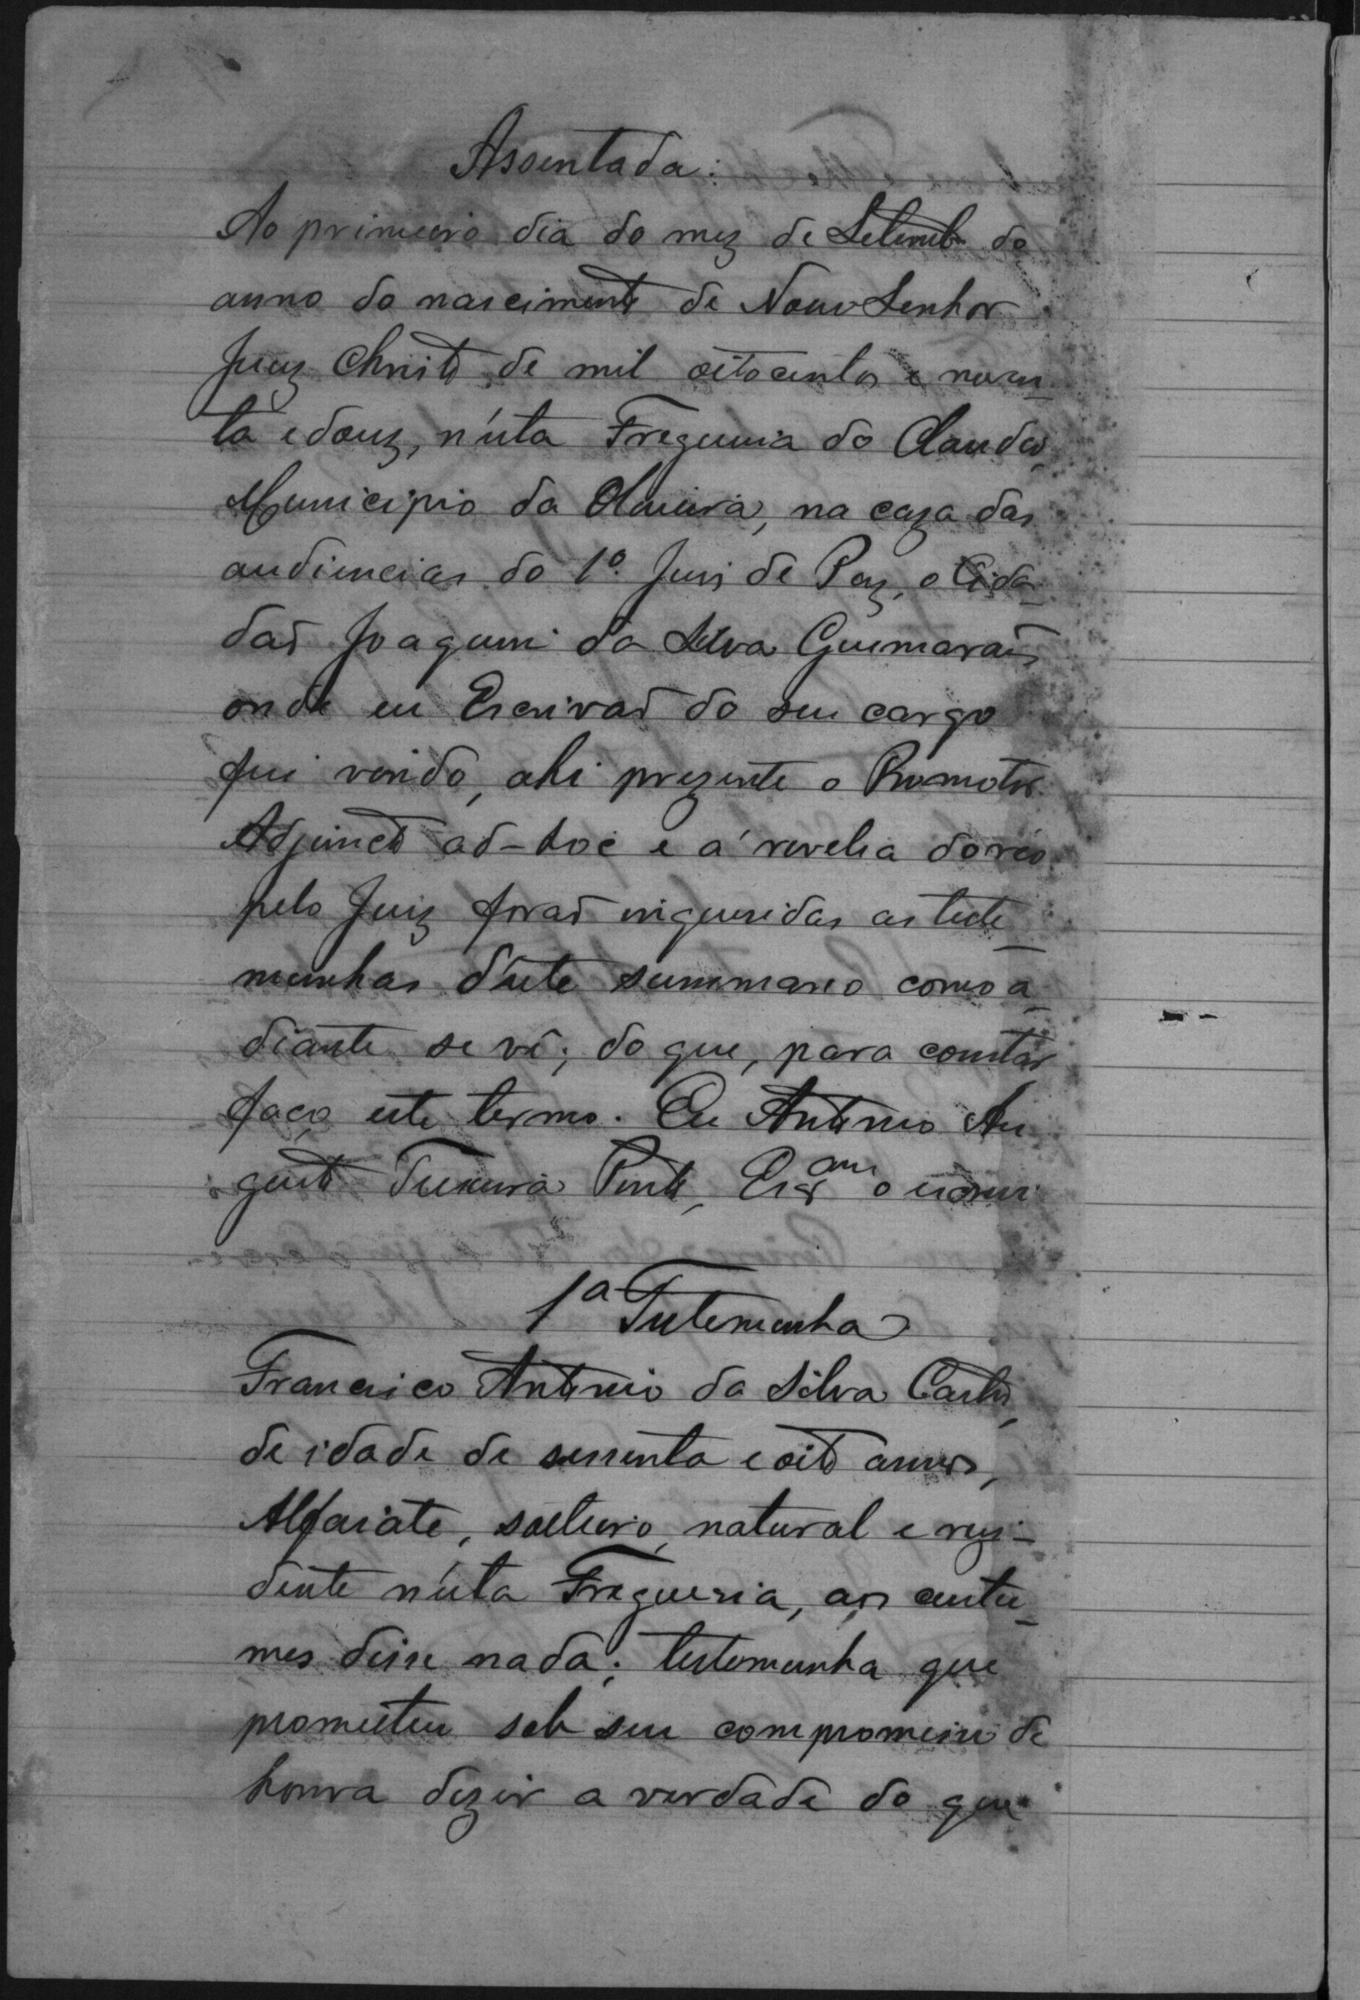 Assentada:
Ao primeiro dia do mez de Setembro do
anno do nascimento de Nosso Senhor
Jesuz Christo de mil oitocentos e noven-
ta e douz, n'esta Freguesia do Claudio,
Municipio da Oliveira, na caza das
audiencias do 1º Juis de Paz, o Cida-
dão Joaquim da Silva Guimarais
onde eu Escrivão do seu cargo
fui vindo, ahi prezente o Promotor
Adjuncto ad-hoc e á revelia do réo
pelo Juiz forão inqueridas as teste
munhas d'este summario como a-
diante se vê; do que, para constar
faço este termo. Eu Antonio Au
gusto Teixeira Pinto, Escram o escrevi
1a Testemunha
Francisco Antonio da Silva Castro,
de idade de sessenta e oito annos,
Alfaiate, solteiro, natural e rezi-
dente n'esta Freguesia, aos custu-
mes disse nada; testemunha que
prometteu sob seu compromisso de
honra dizer a verdade do que